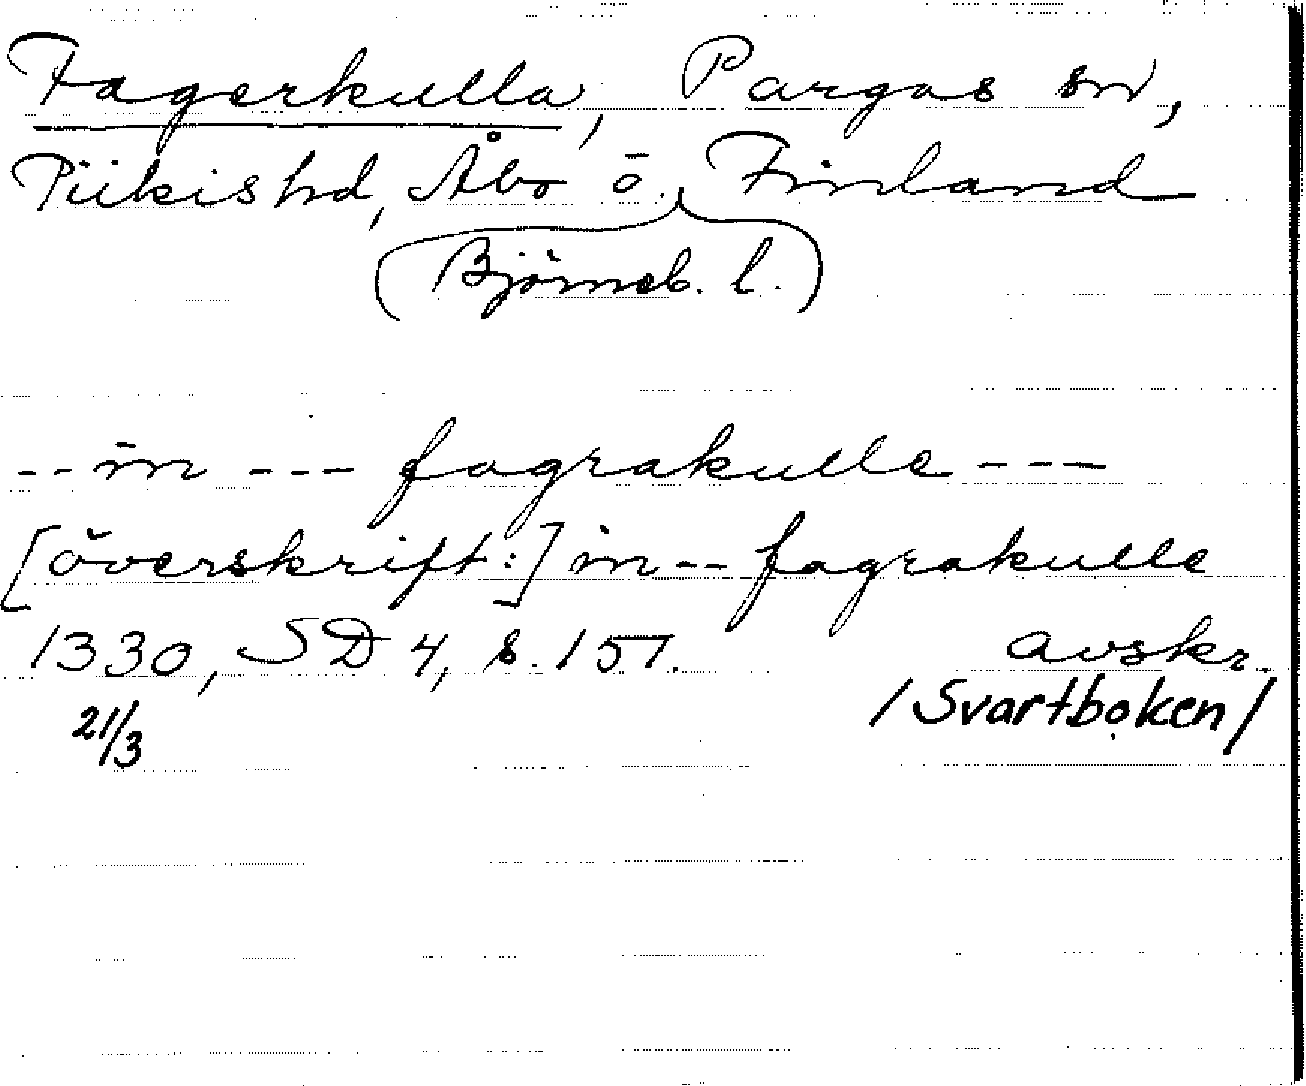 Fagerkulla, Pargas sn,
Piikis hd, Åbo o. Finland
(Björneb. l.)
-- in --- fagrakulle ---
[överskrift:] in -- fagrakulle
1330, SD 4, s. 151. avskr.
21/3 /Svartboken/